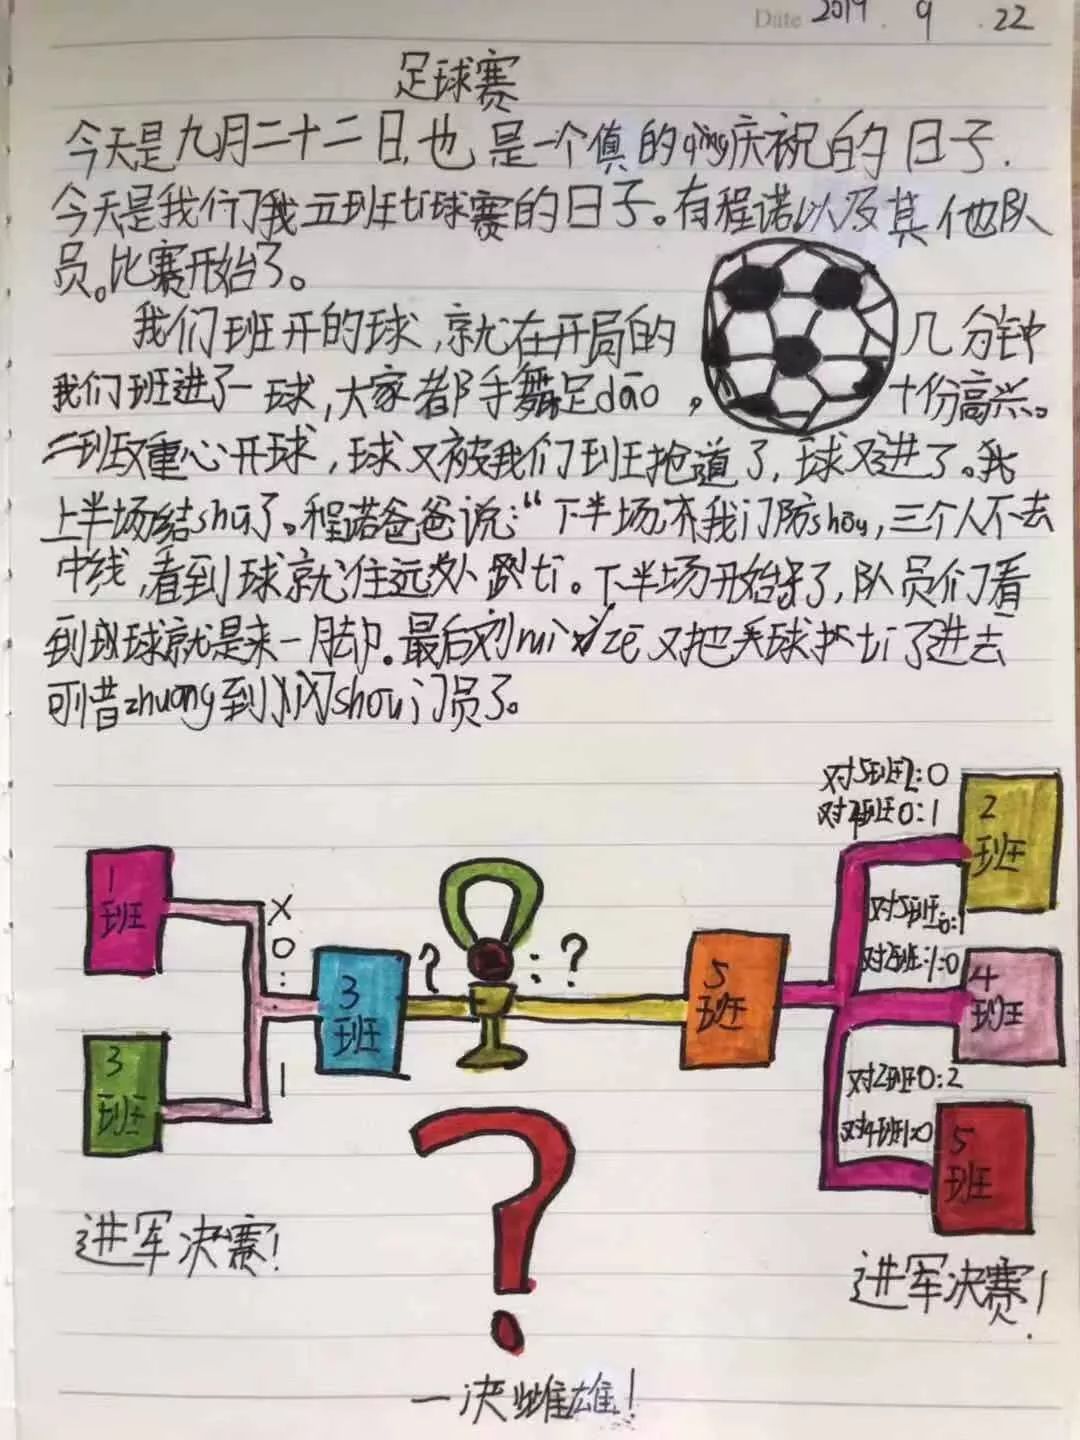 Date 2019.9.22
足球赛
今天是九月二十二日,也是一个值的qìng庆祝的日子.
今天是我们我五班ti球赛的日子。有程诺以及其他队
员。比赛开始了。
我们班开的球,就在开局的几分钟
我们班进了一球,大家都手舞足dāo,十份高兴。
二班重心开球,球又被我们班抢道了,球又进了。
上半场结shù了。程诺爸爸说:“下半场来我门防shǒu,三个人不去
中线,看到球就住远处ti。下半场开始了,队员们看
到球就是来一脚.最后刘ruì zē又把球ti了进去
可惜zhuàng到shǒu门员了。
对5班2:0
对4班0:1
2班
1班
X
0
:
1
3班
3班
?:?
5班
对5班0:1
对2班:1:0
4班
对2班0:2
对4班1:0
5班
进军决赛!
进军决赛!
?
一决雌雄!